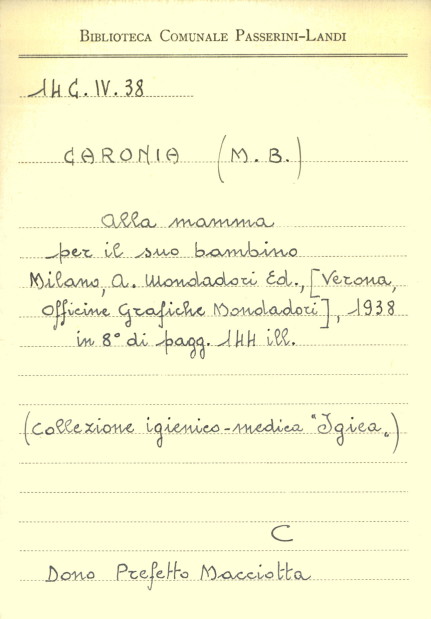 BIBLIOTECA COMUNALE PASSERINI-LANDI
14 C. IV. 38
CARONIA (M. B.)
Alla mamma
per il suo bambino
Milano, A. Mondadori Ed., [Verona,
Officine Grafiche Mondadori], 1938
in 8° di pagg. 144 ill.
(Collezione igienico-medica "Igiea„)
C
Dono Prefetto Macciotta